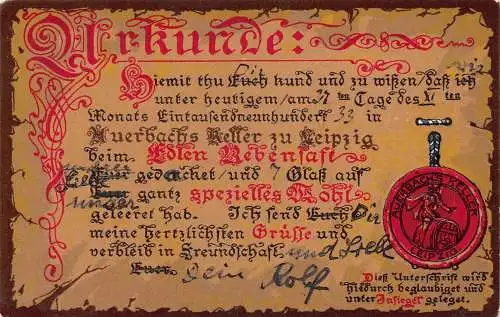 Urkunde:
wir
Hiemit thu Euch kund und zu wißen / daß ich
unter heutigem / am 31ten Tage des VIten
Monats Eintausendneunhundert 33 in
Auerbachs Keller zu Leipzig
beim Edlen Rebensaft
Euer gedencket / und 7 Glaß auf
Euer gantz spezielles Wohl
unser
geleeret hab. Ich send Euch Dir
meine hertzlichsten Grüsse und
verbleib in Freundschaft
Euer. Dein Rolf
AUERBACHS KELLER
LEIPZIG
Dieß Unterschrift wird
hiedurch beglaubiget und
unter Insiegel geleget.